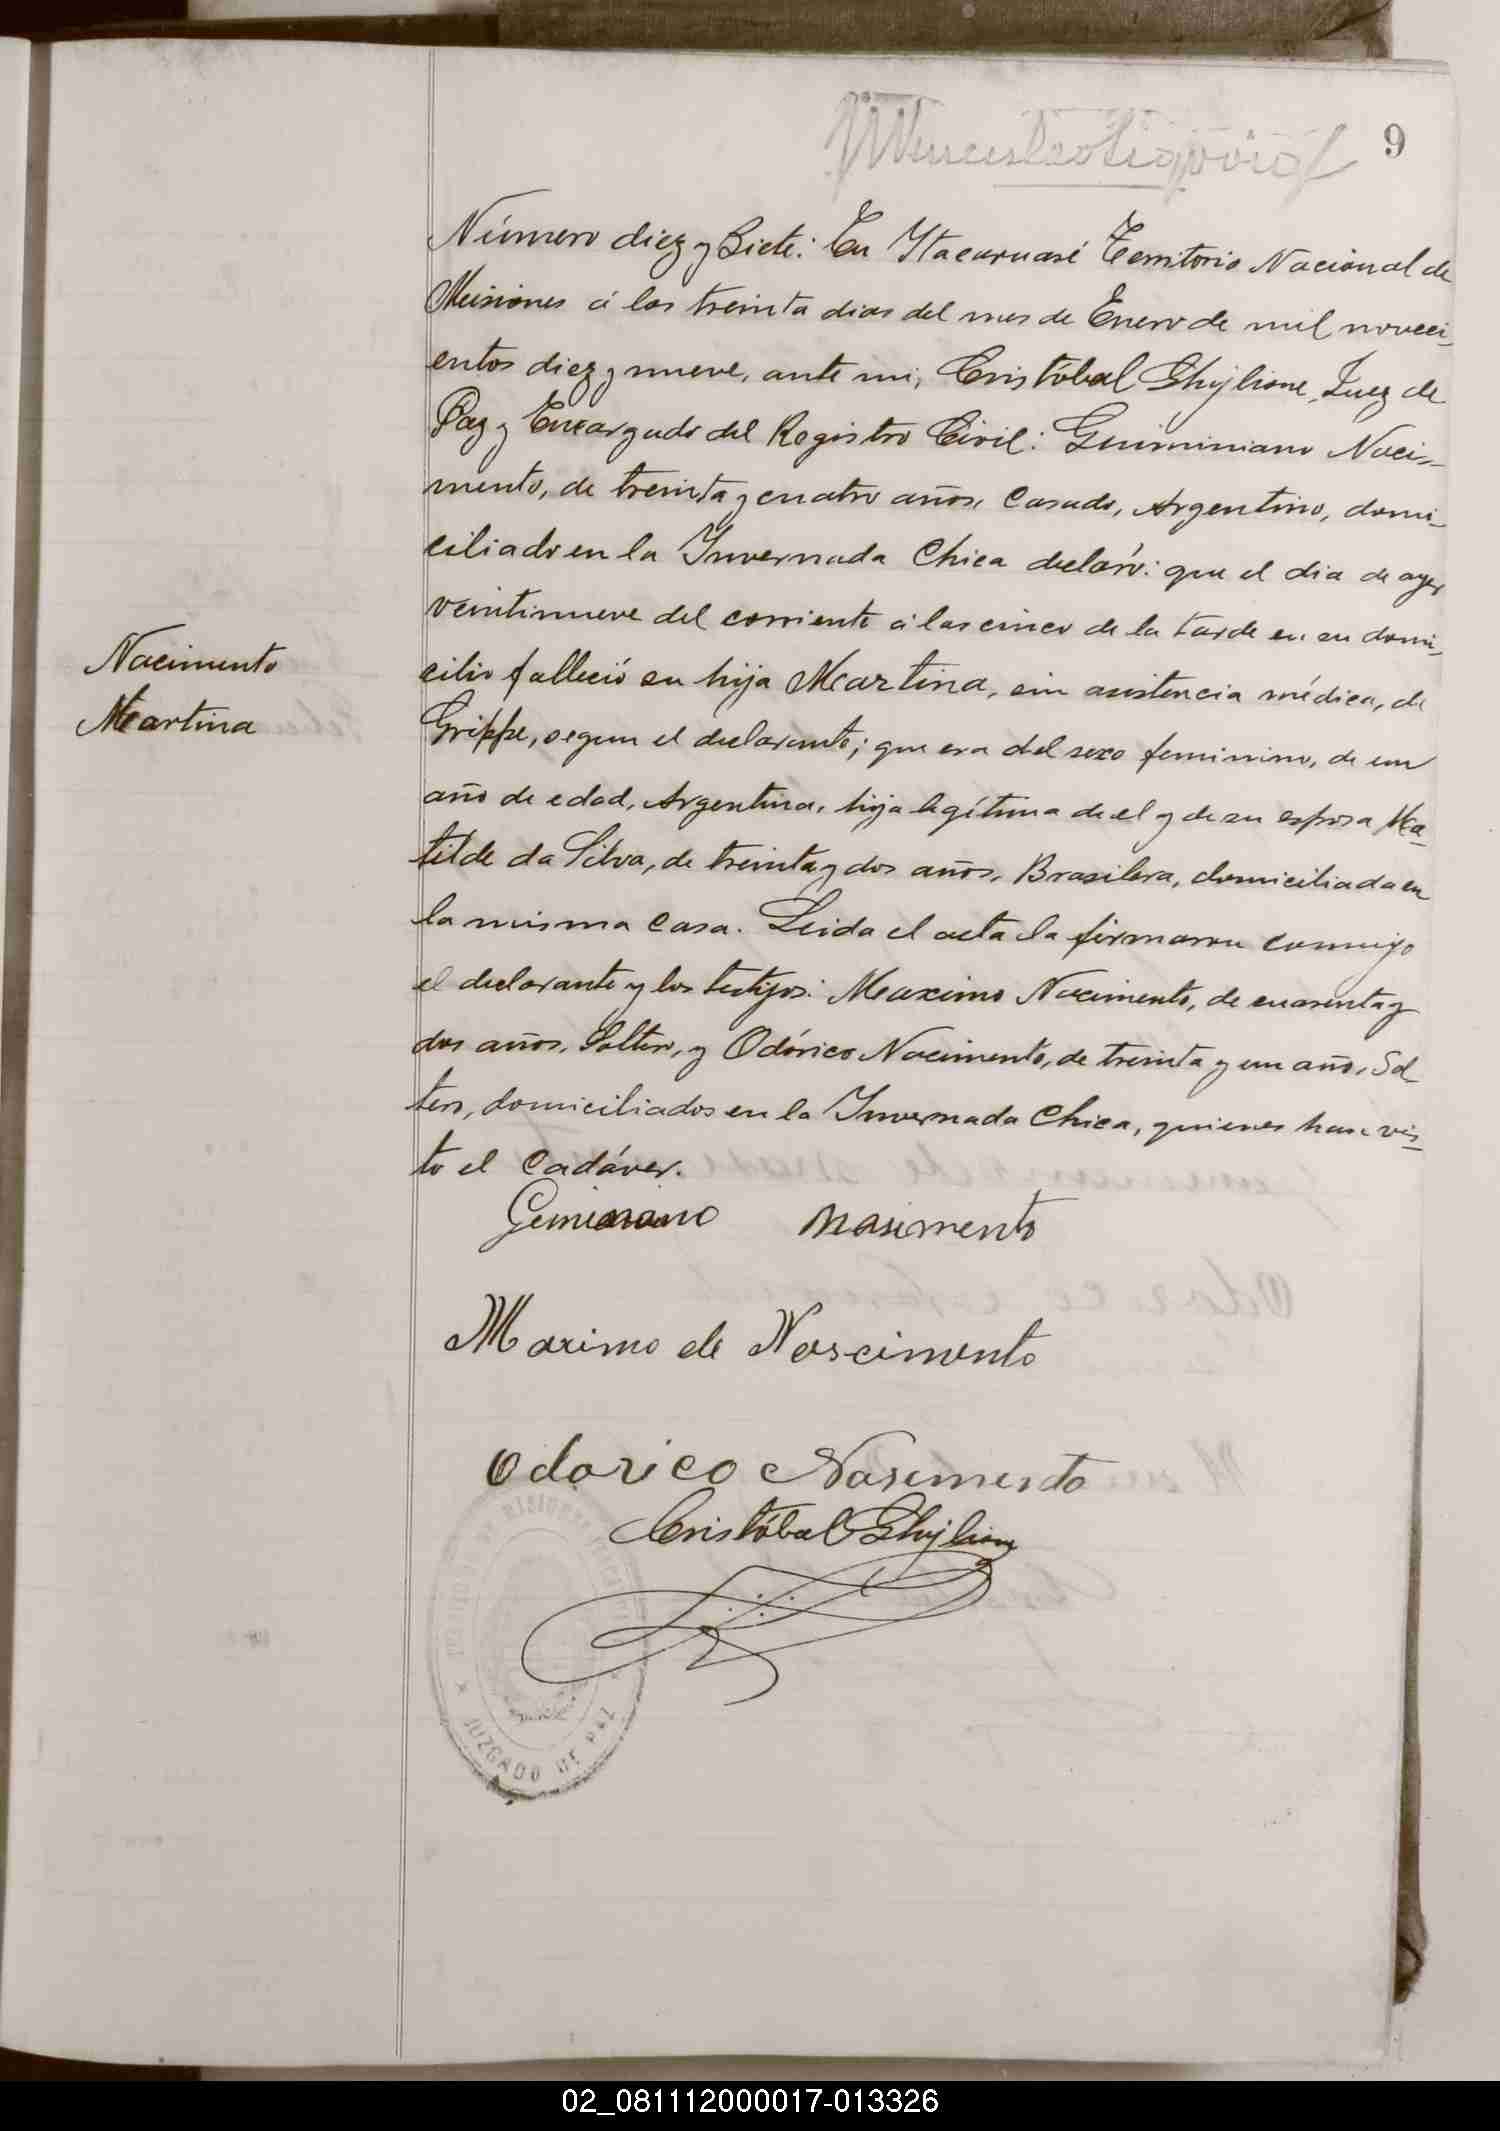 9
Número diez y Siete: En Itacaruaré Territorio Nacional de
Misiones á los treinta dias del mes de Enero de mil noveci-
entos diez y nueve, ante mi, Cristóbal Ghiglione, Juez de
Paz y Encargado del Registro Civil: Guiminiano Naci-
mento, de treinta y cuatro años, Casado, Argentino, domi-
ciliado en la Invernada Chica declaró: que el dia de ayer
veintinueve del corriente á las cinco de la tarde en su domi-
cilio falleció su hija Martina, sin asistencia médica, de
Grippe, segun el declarante; que era del sexo feminino, de un
año de edad, Argentina, hija legítima de el y de su esposa Ma-
tilde da Silva, de treinta y dos años, Brasilera, domiciliada en
la misma Casa. Leida el acta la firmaron conmigo
el declarante y los testigos: Maximo Nacimento, de cuarenta y
dos años, Soltero, y Odórico Nacimento, de treinta y un año, Sol-
tero, domiciliados en la Invernada Chica, quienes han vis-
to el Cadáver.
Nacimento
Martina
Geminiano Nasimento
Maximo de Nascimento
Odorico Nasimento
Cristóbal Ghiglione
JUZGADO DE PAZ
02_081112000017-013326